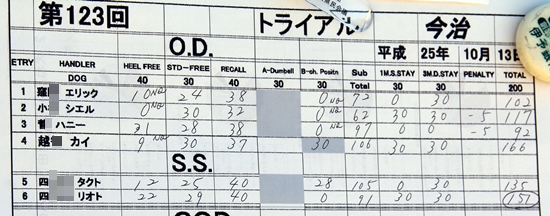 第123回 トライアル 今治
O.D. 平成 25年 10月 13日
ETRY HANDLER HEEL FREE STD-FREE RECALL A-Dumbell B-ch. Positn Sub 1M.S.STAY 3M.D.STAY PENALTY TOTAL
DOG 40 30 40 30 30 30 30 200
1 エリック 10 NQ 24 38 0 NQ 72 0 30 102
2 シエル 0 NQ 30 32 0 NQ 62 30 30 -5 117
3 ハニー 31 28 38 0 NQ 97 0 0 -5 92
4 越 カイ 9 NQ 30 37 30 106 30 30 166
S.S.
5 四 タクト 12 25 40 28 105 0 30 135
6 四 リオト 22 29 40 0 91 30 30 151